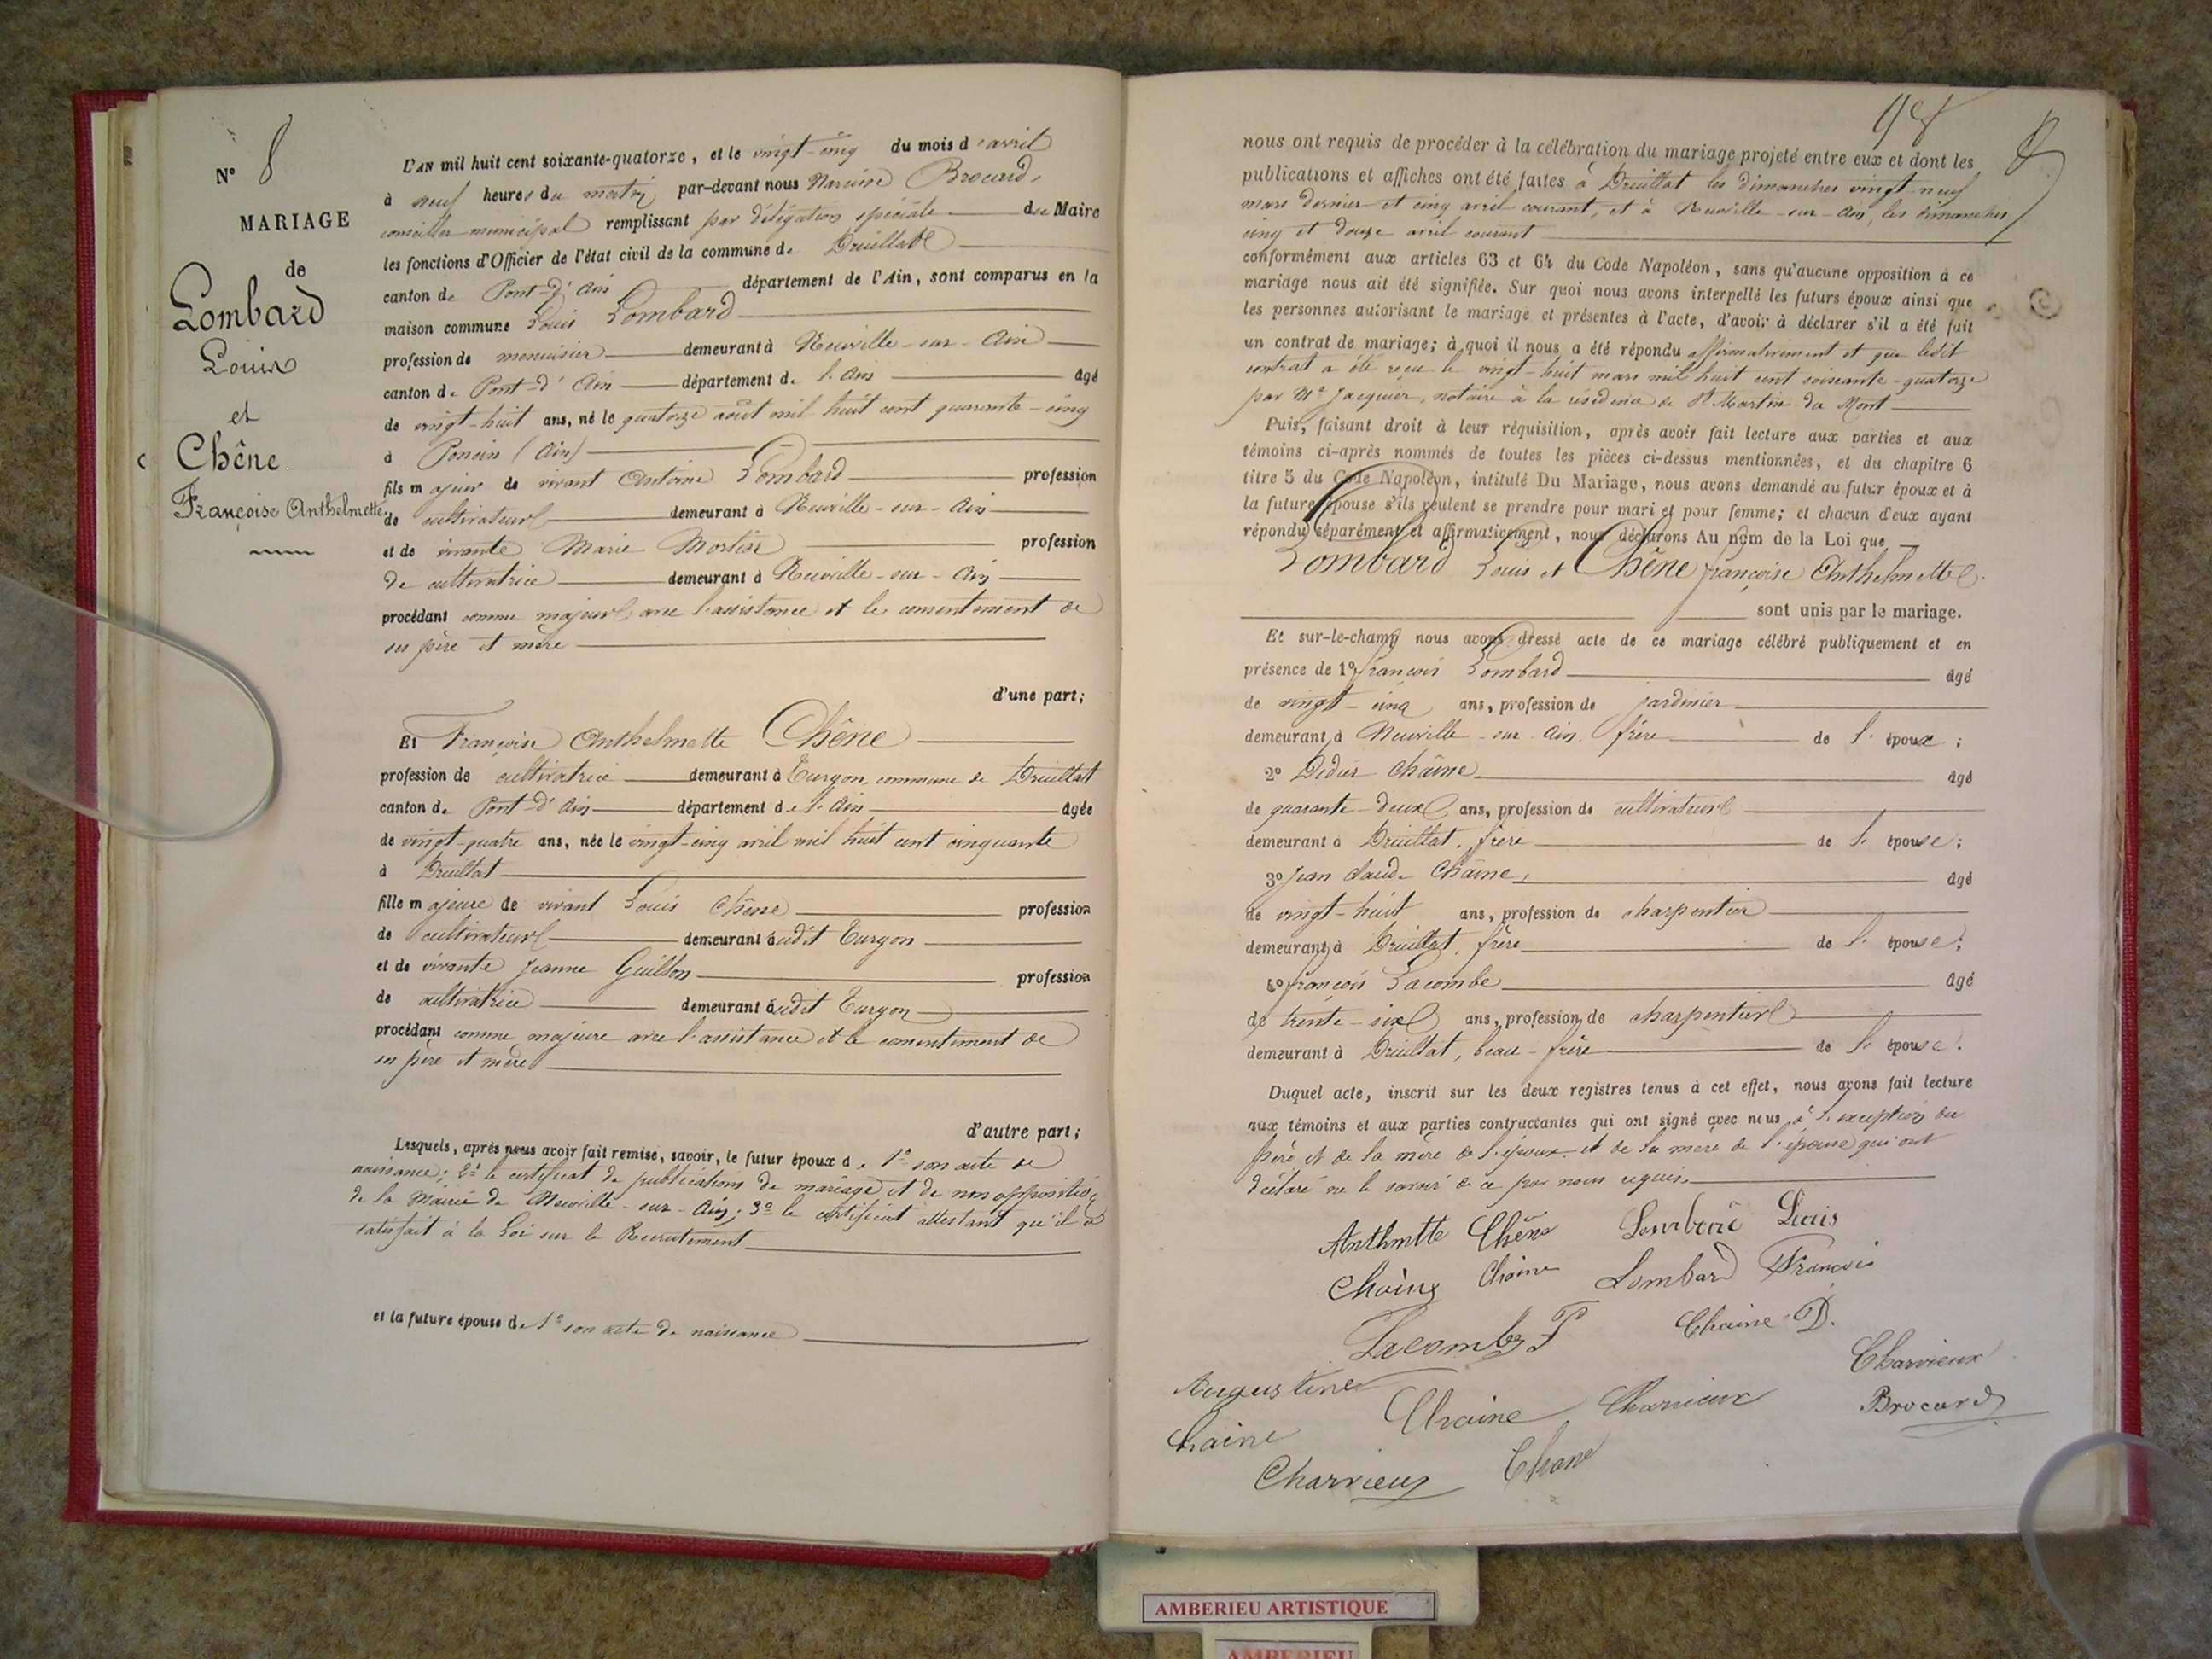 N° 8
MARIAGE
de
Lombard
Louis
et
Chêne
Françoise Anthelmette
L'AN mil huit cent soixante-quatorze, et le vingt-cinq du mois d'avril
à neuf heures du matin par-devant nous Narcisse Brocard,
conseiller municipal remplissant par délégation spéciale du Maire
les fonctions d'Officier de l'état civil de la commune de Druillat
canton de Pont-d'Ain département de l'Ain, sont comparus en la
maison commune Louis Lombard
profession de menuisier demeurant à Neuville-sur-Ain
canton de Pont-d'Ain département de l'Ain âgé
de vingt-huit ans, né le quatorze août mil huit cent quarante-cinq
à Poncin (Ain)
fils majeur de vivant Antoine Lombard profession
de cultivateur demeurant à Neuville-sur-Ain
et de vivante Marie Mortier profession
de cultivatrice demeurant à Neuville-sur-Ain
procédant comme majeur avec l'assistance et le consentement de
ses père et mère
d'une part;
Et Françoise Anthelmette Chêne
profession de cultivatrice demeurant à Turgon commune de Druillat
canton de Pont-d'Ain département de l'Ain âgée
de vingt-quatre ans, née le vingt-cinq avril mil huit cent cinquante
à Druillat
fille majeure de vivant Louis Chêne profession
de cultivateur demeurant audit Turgon
et de vivante Jeanne Guillon profession
de cultivatrice demeurant audit Turgon
procédant comme majeure avec l'assistance et le consentement de
ses père et mère
d'autre part;
Lesquels, après nous avoir fait remise, savoir, le futur époux de 1° son acte de
naissance; 2° le certificat de publications de mariage et de non opposition
de la Mairie de Neuville-sur-Ain; 3° le certificat attestant qu'il a
satisfait à la Loi sur le Recrutement
et la future épouse de 1° son acte de naissance
98
8
nous ont requis de procéder à la célébration du mariage projeté entre eux et dont les
publications et affiches ont été faites à Druillat les dimanches vingt-neuf
mars dernier et cinq avril courant, et à Neuville-sur-Ain, les dimanches
cinq et douze avril courant
conformément aux articles 63 et 64 du Code Napoléon, sans qu'aucune opposition à ce
mariage nous ait été signifiée. Sur quoi nous avons interpellé les futurs époux ainsi que
les personnes autorisant le mariage et présentes à l'acte, d'avoir à déclarer s'il a été fait
un contrat de mariage; à quoi il nous a été répondu affirmativement et que ledit
contrat a été reçu le vingt-huit mars mil huit cent soixante-quatorze
par Me Jacquier, notaire à la résidence de St Martin du Mont
Puis, faisant droit à leur réquisition, après avoir fait lecture aux parties et aux
témoins ci-après nommés de toutes les pièces ci-dessus mentionnées, et du chapitre 6
titre 5 du Code Napoléon, intitulé Du Mariage, nous avons demandé au futur époux et à
la future épouse s'ils veulent se prendre pour mari et pour femme; et chacun d'eux ayant
répondu séparément et affirmativement, nous déclarons Au nom de la Loi que
Lombard Louis et Chêne françoise Anthelmette
sont unis par le mariage.
Et sur-le-champ nous avons dressé acte de ce mariage célébré publiquement et en
présence de 1° françois Lombard âgé
de vingt-cinq ans, profession de jardinier
demeurant à Neuville-sur-Ain frère de l'époux;
2° Didier Chaîne âgé
de quarante-deux ans, profession de cultivateur
demeurant à Druillat, frère de l'épouse;
3° Jean Claude Chaîne, âgé
de vingt-huit ans, profession de charpentier
demeurant à Druillat, frère de l'épouse;
4° françois Lacombe âgé
de trente-six ans, profession de charpentier
demeurant à Druillat, beau-frère de l'épouse.
Duquel acte, inscrit sur les deux registres tenus à cet effet, nous avons fait lecture
aux témoins et aux parties contractantes qui ont signé avec nous, à l'exception du
père et de la mère de l'époux et de la mère de l'épouse qui ont
déclaré ne le savoir de ce par nous requis.
Anthmtte Chêne Lombard Louis
Chaine Chaine Lombard François
Lacombe F Chaine D.
Charvieux
Augustine Chaine Charvieux Brocard
Chaine
Charvieux Chane
AMBERIEU ARTISTIQUE
AMBERIEU